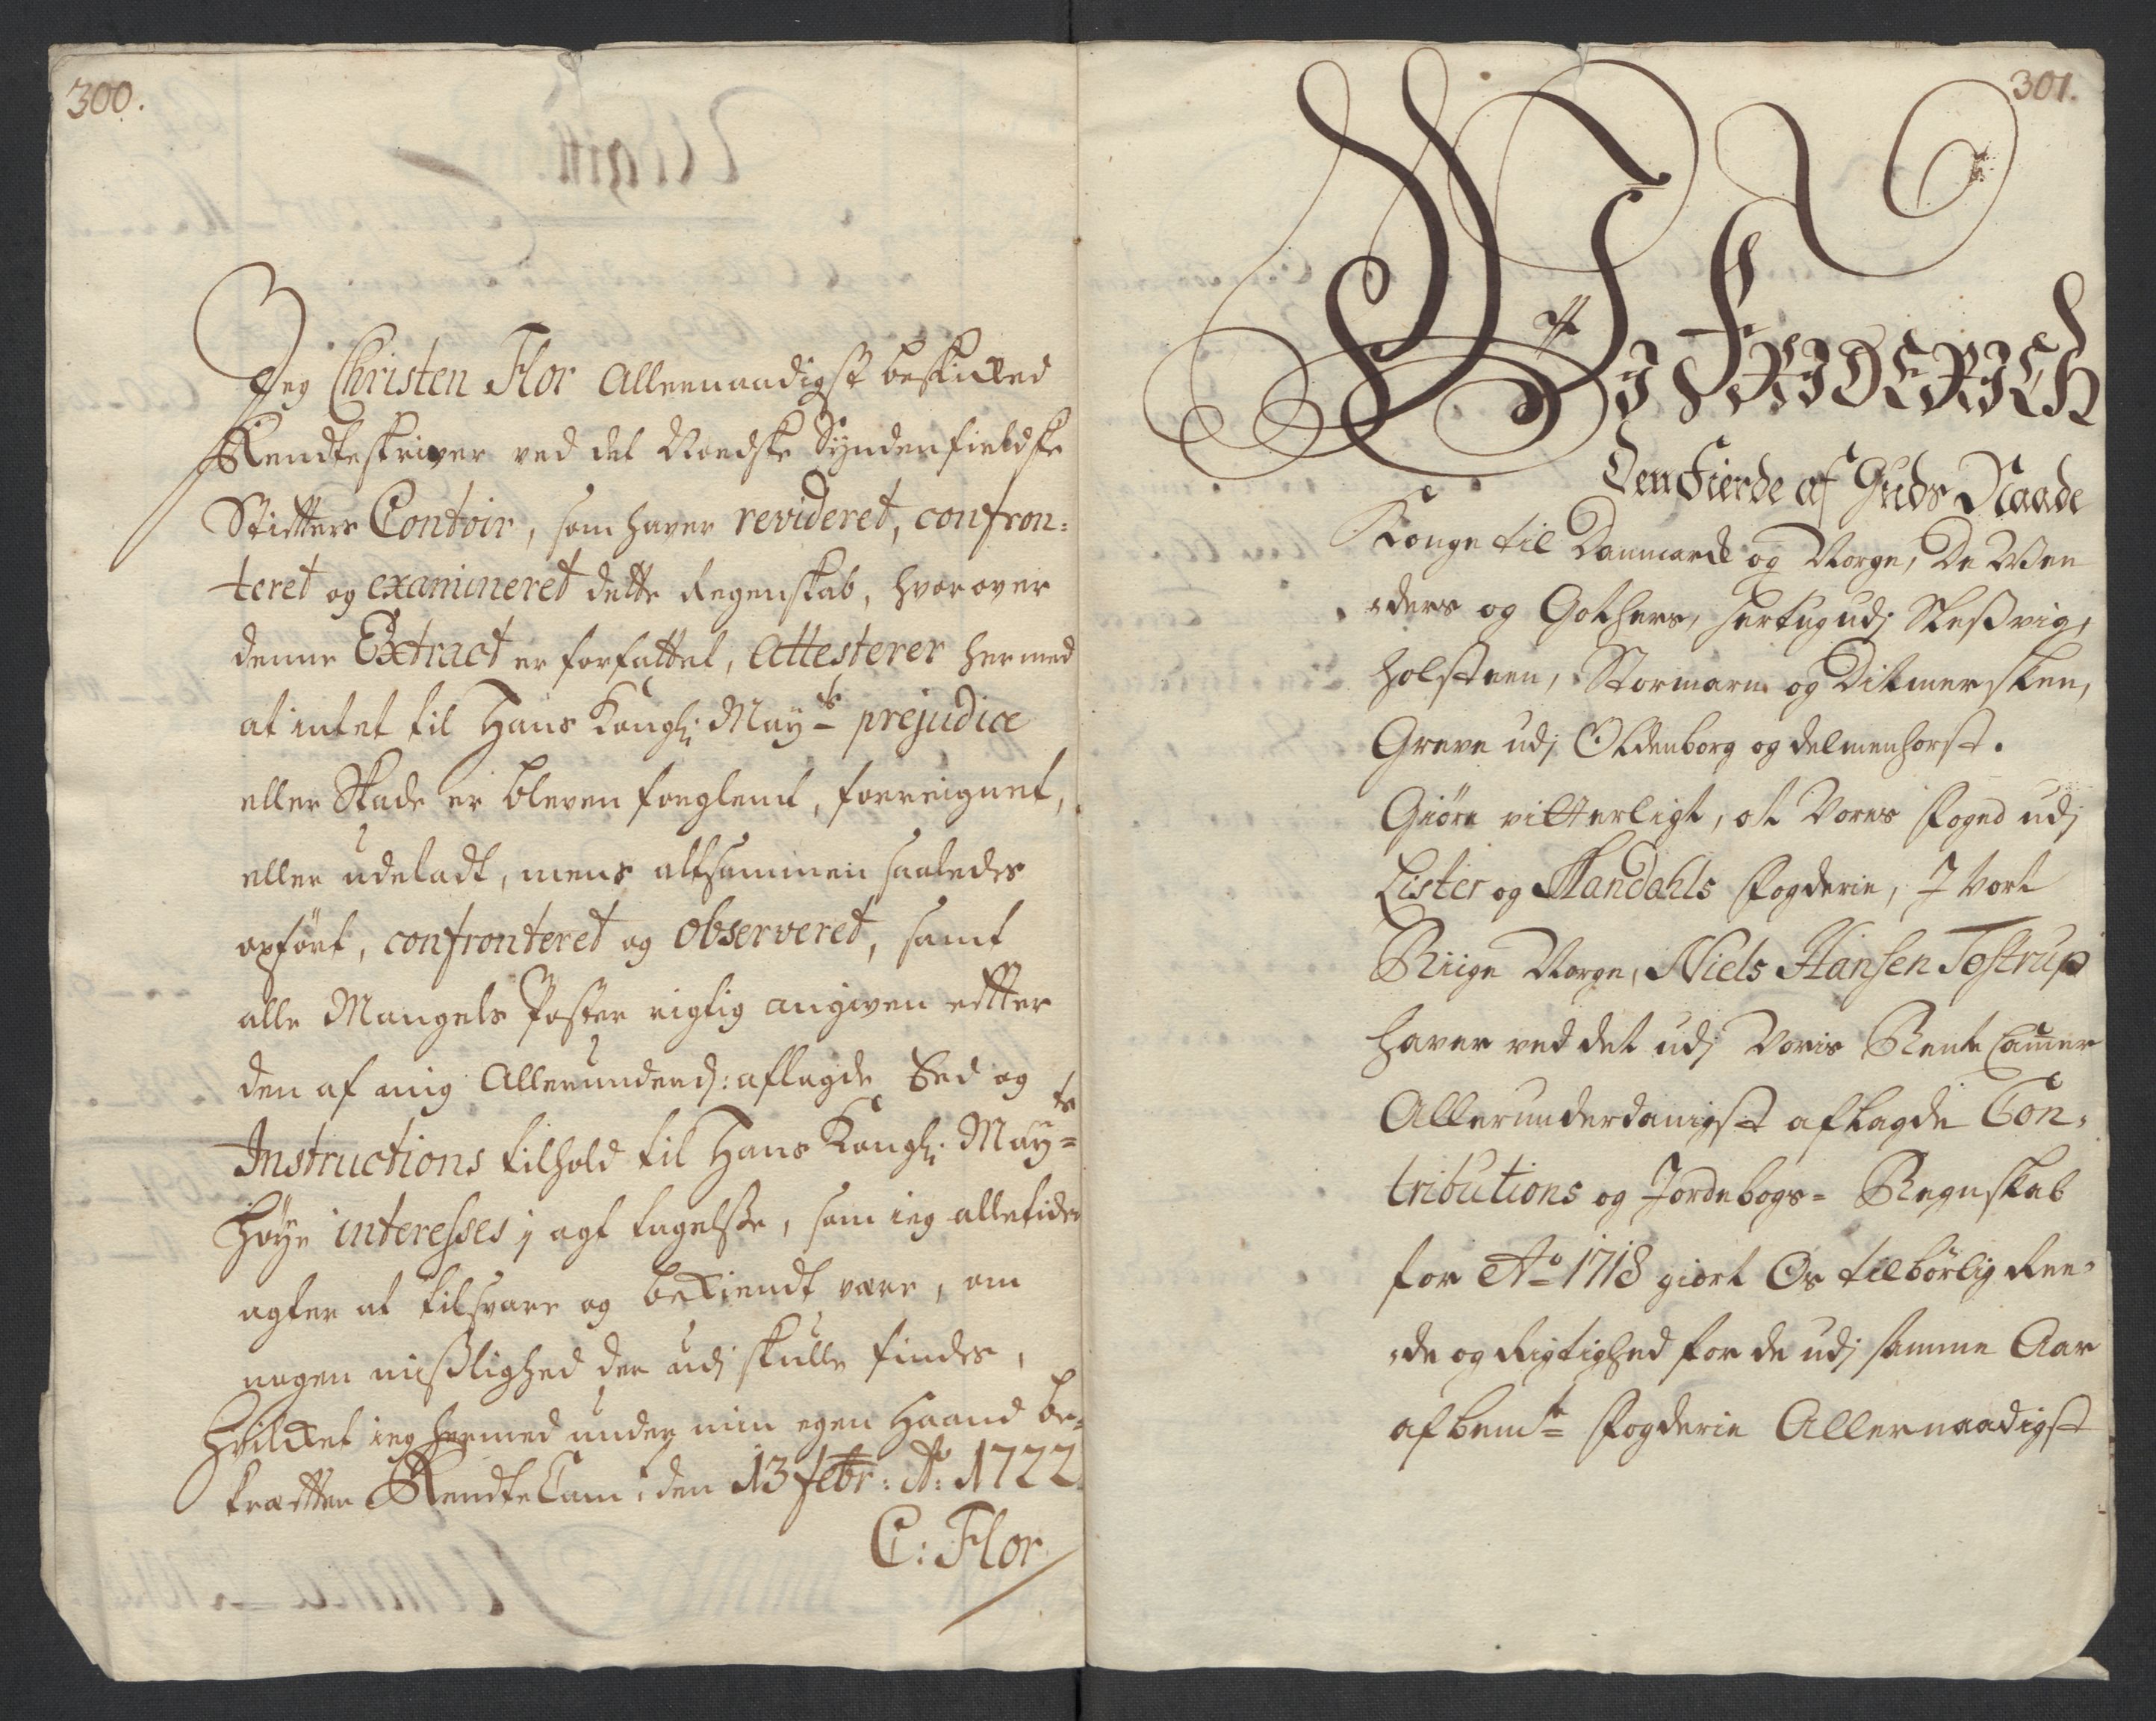 300.
Jeg Christen Flor Allernaadigst beskicked
Rendteskriver ved det Nordske Syndenfieldske
Stifters Contoir, som haver revideret, confron=
teret og examineret dette Regenskab, hvorover
denne Extract er forfattet, Attesterer hermed
at intet til Hans Kongl: May.ts prejudice
eller Skade er bleven forglemt, forreignet,
eller udeladt, mens altsammen saaledes
opført, confronteret og observeret, samt
alle Mangels Poster rigtig angiven efter
den af mig Allerunderd: aflagde Eed og
Instructions tilhold til Hans Kongl: May.ts
Høye interesses j agt tagelse, som ieg alletider
agter at tilsvare og bekiendt være, om
nogen mislighed der udj skulle findes,
Hvilket ieg hermed under min egen Haand be=
kræfter Rendte Cam: den 13 febr: Ao: 1722
C: Flor
301.
WJ FRIDERICH
Den Fierde af Guds Naade
Konge til Danmark og Norge, De Wen
=ders og Gothers, Hertug udj Slesvig,
Holsteen, Stormarn og Ditmersken,
Greve udj Oldenborg og delmenhorst.
Giøre vitterligt, at Vores Foged udj
Lister og Mandahls Fogderie, J Vort
Riige Norge, Niels Hansen Testrup
haver ved det udj Voris Rente Camer
Allerunderdanigst aflagde Con=
tributions og Jordebogs= Regnskab
for Ao 1718 giort Os tilbørlig Ree=
=de og Rigtighed for de udj samme Aar
af bemte Fogderie Allernaadigst